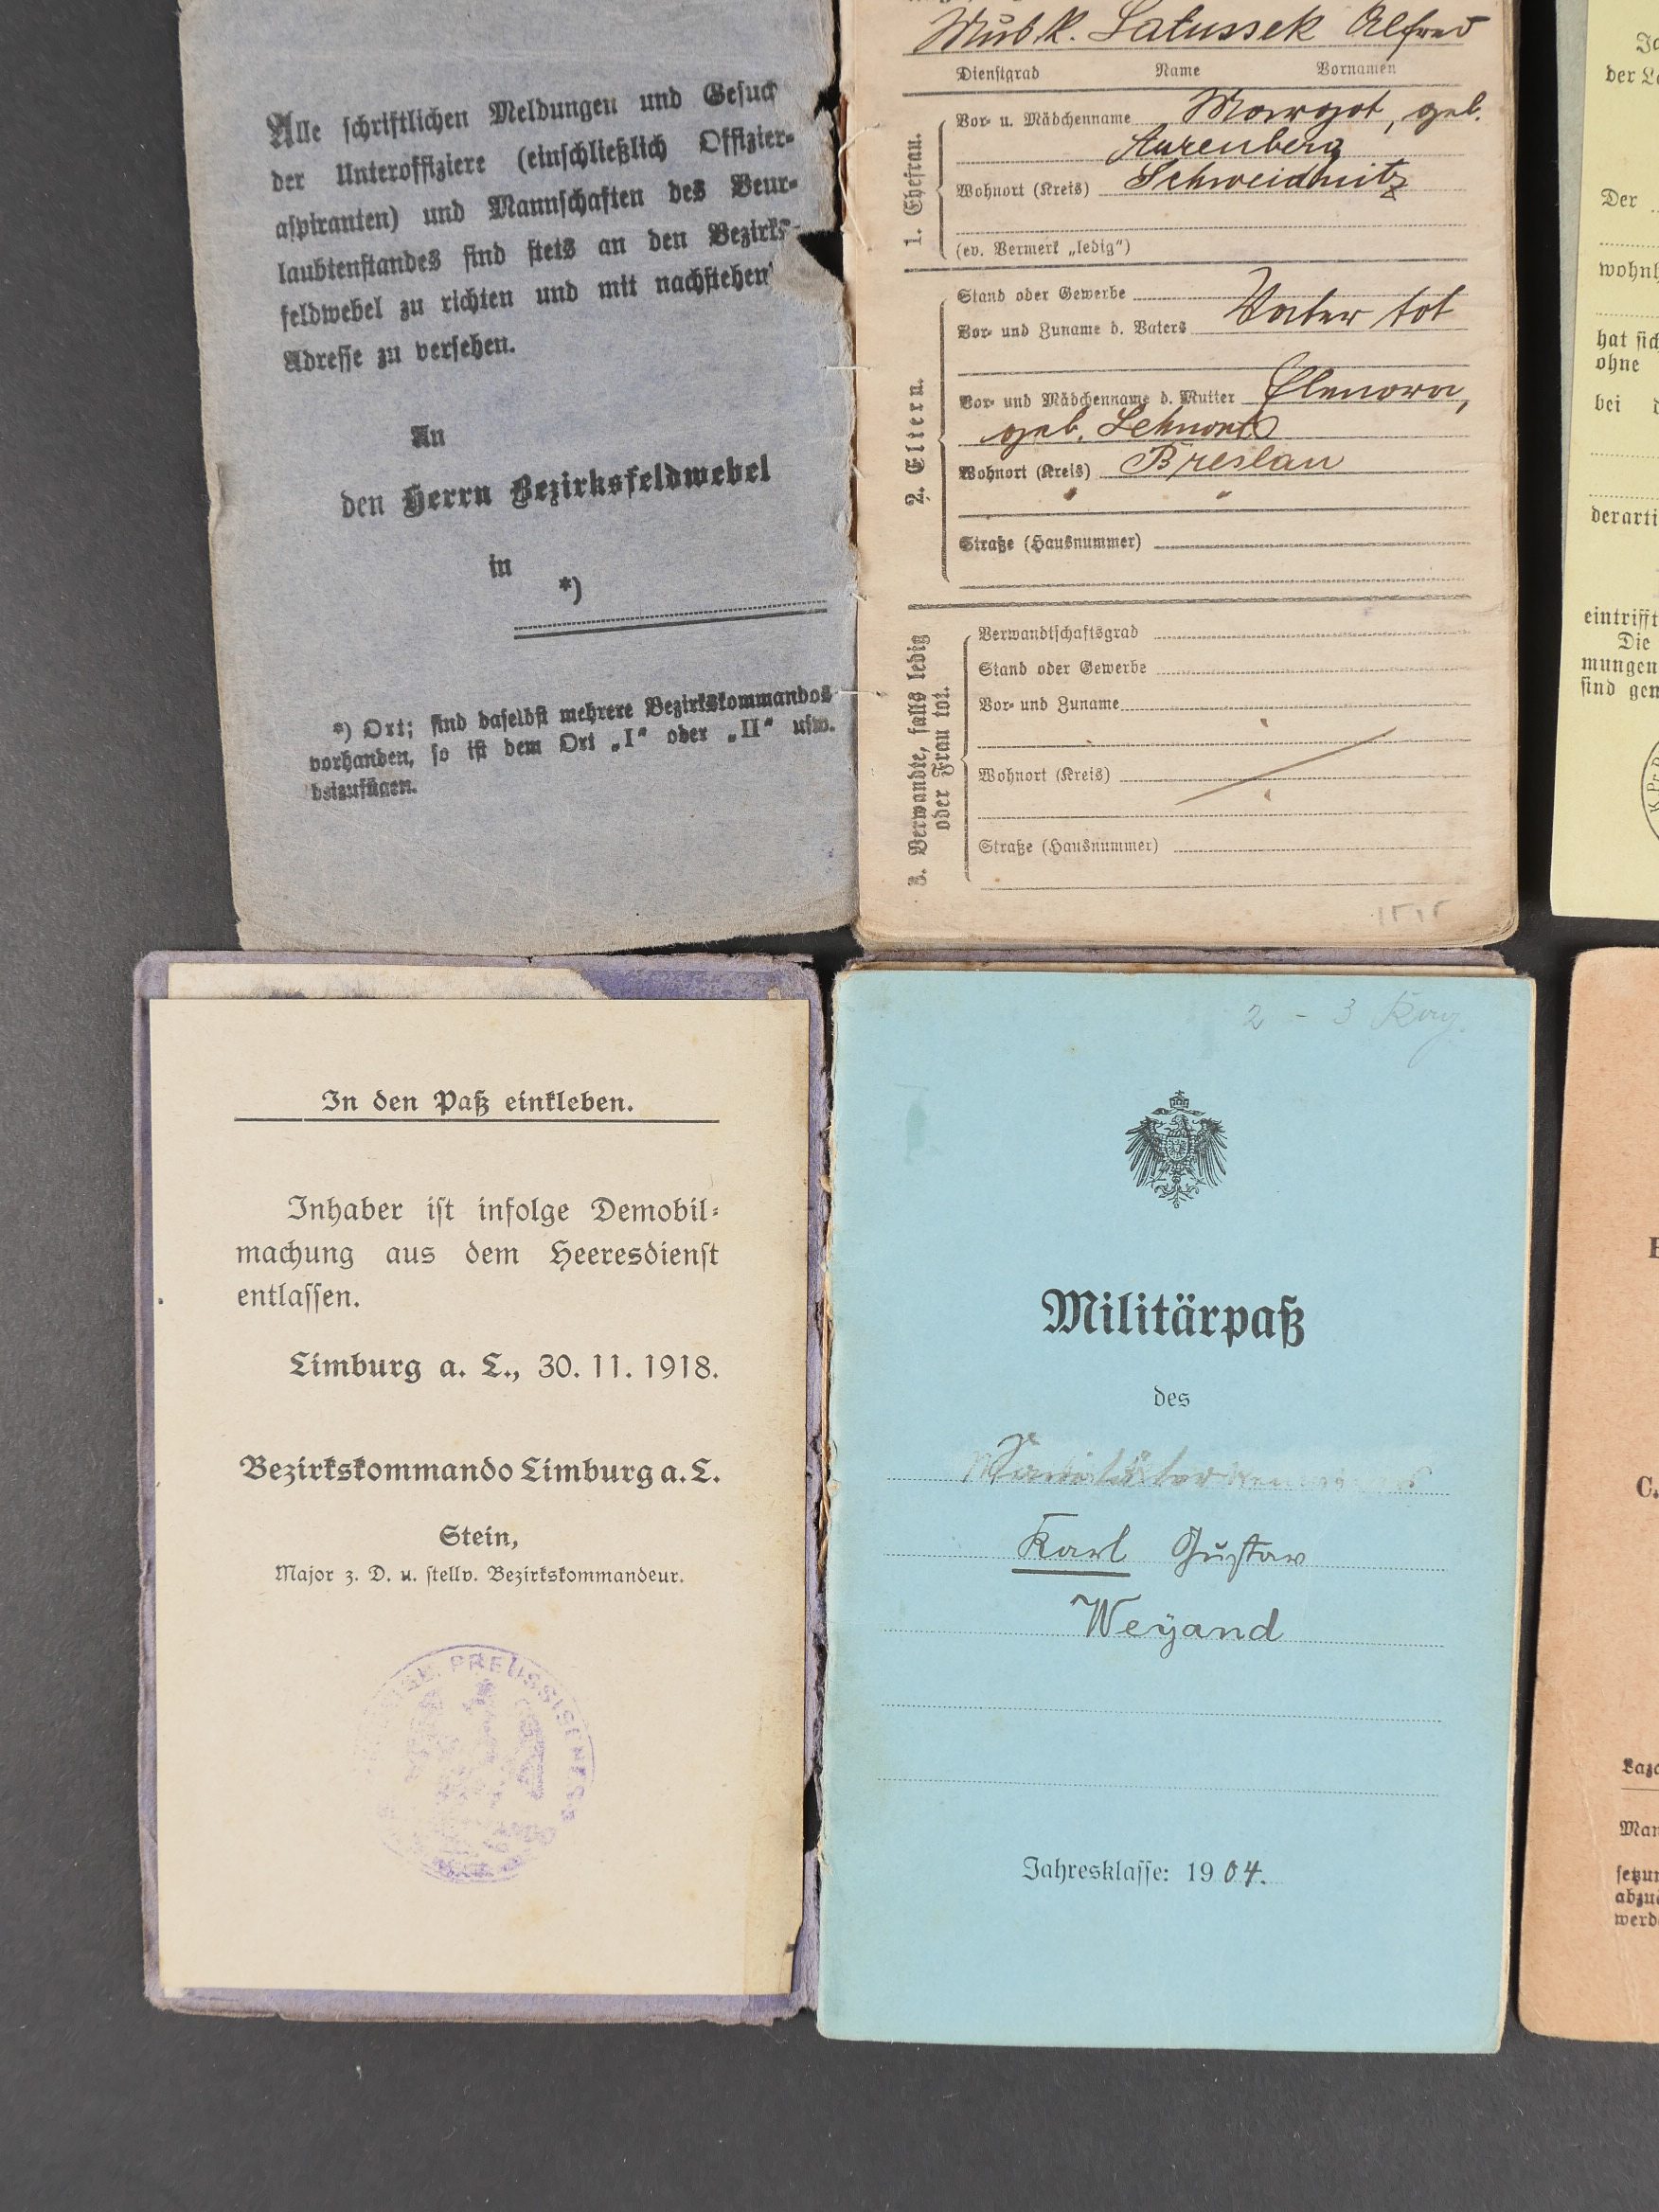 Alle schriftlichen Meldungen und Gesuch
der Unteroffiziere (einschließlich Offizier-
aspiranten) und Mannschaften des Beur-
laubtenstandes sind stets an den Bezirks-
feldwebel zu richten und mit nachstehen
Adresse zu versehen.
An
den Herrn Bezirksfeldwebel
in
*)
*) Ort; sind daselbst mehrere Bezirkskommandos
vorhanden, so ist dem Ort „I" oder „II" usw.
beizufügen.
Musk. Latussek Alfred
Dienstgrad Name Vornamen
1. Ehefrau.
Vor- u. Mädchenname Margot, geb.
Wohnort (Kreis) Schweidnitz
(ev. Vermerk „ledig")
2. Eltern.
Stand oder Gewerbe
Vor- und Zuname d. Vaters Vater tot
Vor- und Mädchenname d. Mutter Elenora,
geb.
Wohnort (Kreis) Breslau
Straße (Hausnummer)
3. Verwandte, falls ledig
oder Frau tot.
Verwandtschaftsgrad
Stand oder Gewerbe
Vor- und Zuname
Wohnort (Kreis)
Straße (Hausnummer)
der
Der
wohnh
hat sich
ohne
bei
derarti
eintrifft
Die
mungen
sind gen
In den Paß einkleben.
Inhaber ist infolge Demobil-
machung aus dem Heeresdienst
entlassen.
Limburg a. L., 30. 11. 1918.
Bezirkskommando Limburg a. L.
Stein,
Major z. D. u. stellv. Bezirkskommandeur.
PREUSSISCHES
2 - 3
Militärpaß
des
Karl Gustav
Weyand
Jahresklasse: 1904.
C.
Laza
Man
setzun
abzu
werd